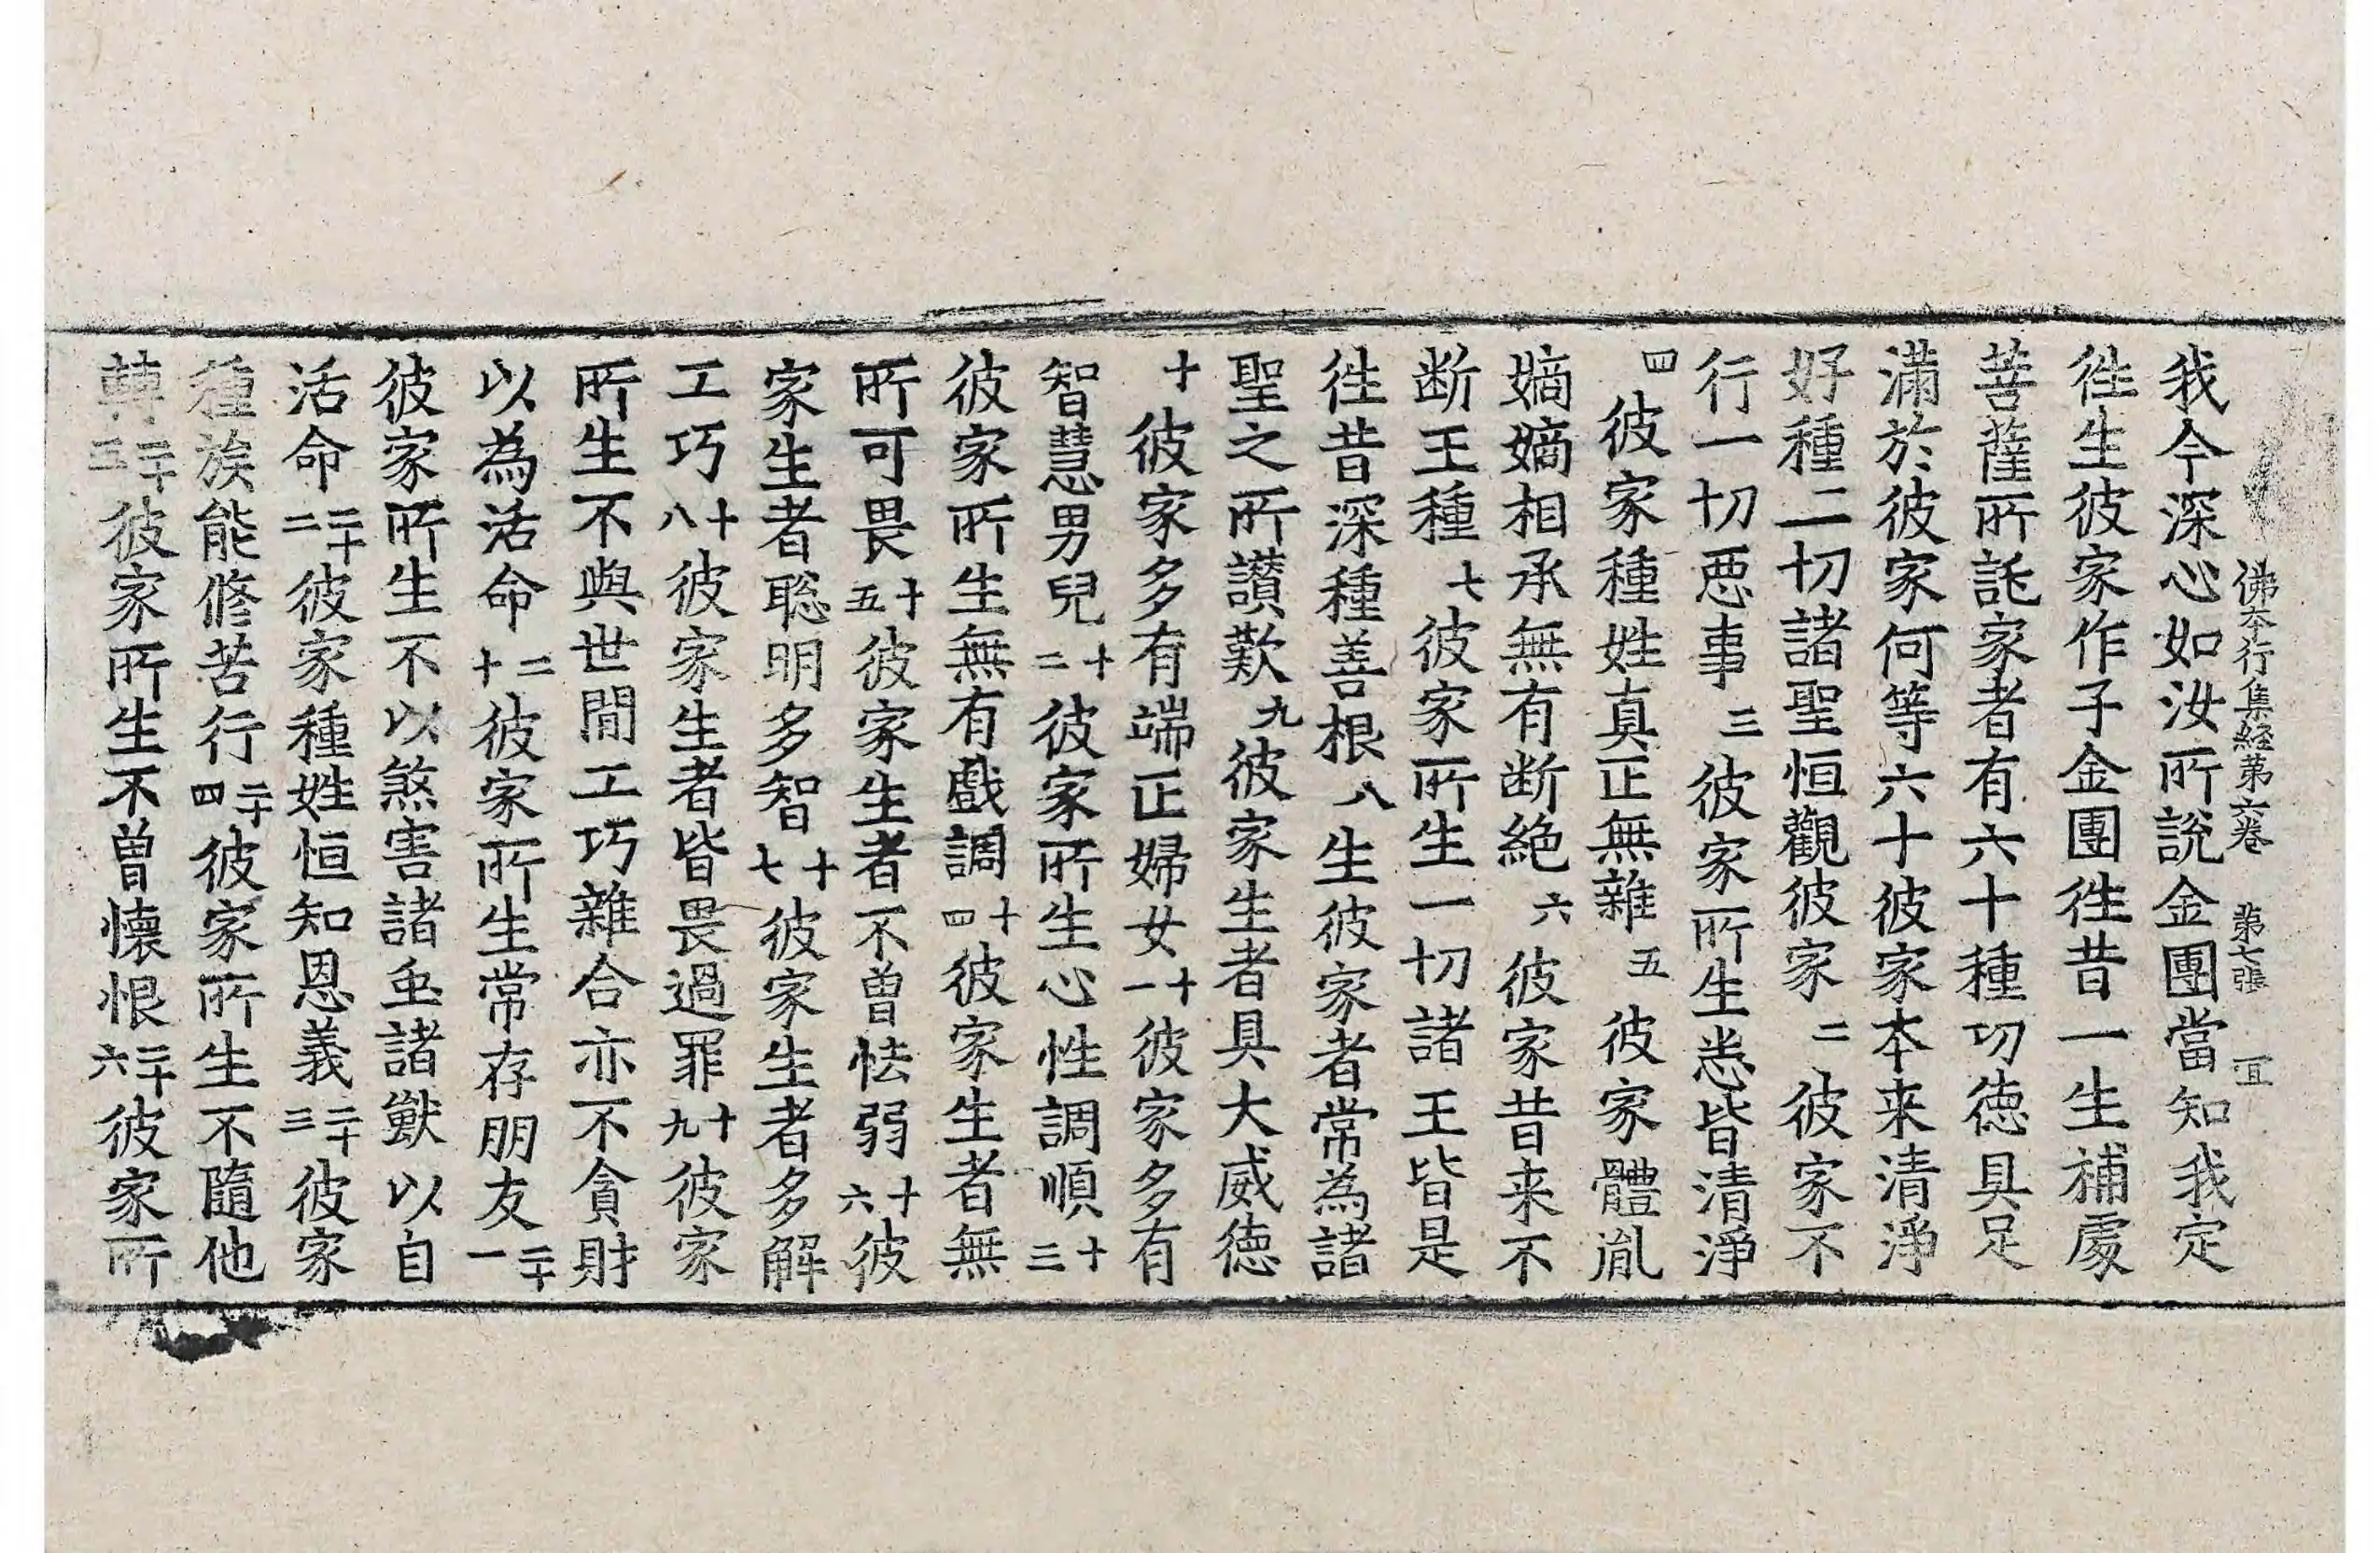 佛本行集経第六卷 第七張 冝
我今深心如汝所說金團當知我定
徃生彼家作子金團徃昔一生補處
菩薩所託家者有六十種功德具足
滿於彼家何等六十彼家本来清淨
好種一切諸聖恒觀彼家二彼家不
行一切恶事三彼家所生悉皆清淨
四彼家種姓真正無雜五彼家體胤
嫡嫡相承無有断絶六彼家昔来不
断王種七彼家所生一切諸王皆是
徃昔深種善根八生彼家者常為諸
聖之所讚歎九彼家生者具大威德
十彼家多有端正婦女十一彼家多有
智慧男兒十二彼家所生心性調順十三
彼家所生無有戲調十四彼家生者無
所可畏十五彼家生者不曾怯弱十六彼
家生者聡明多智十七彼家生者多解
工巧十八彼家生者皆畏過罪十九彼家
所生不與世間工巧雜合亦不貪財
以為活命二十彼家所生常存朋友二十一
彼家所生不以煞害諸䖝諸獸以自
活命二十二彼家種姓恒知恩義二十三彼家
種族能修苦行二十四彼家所生不隨他
轉二十五彼家所生不曾懷恨二十六彼家所